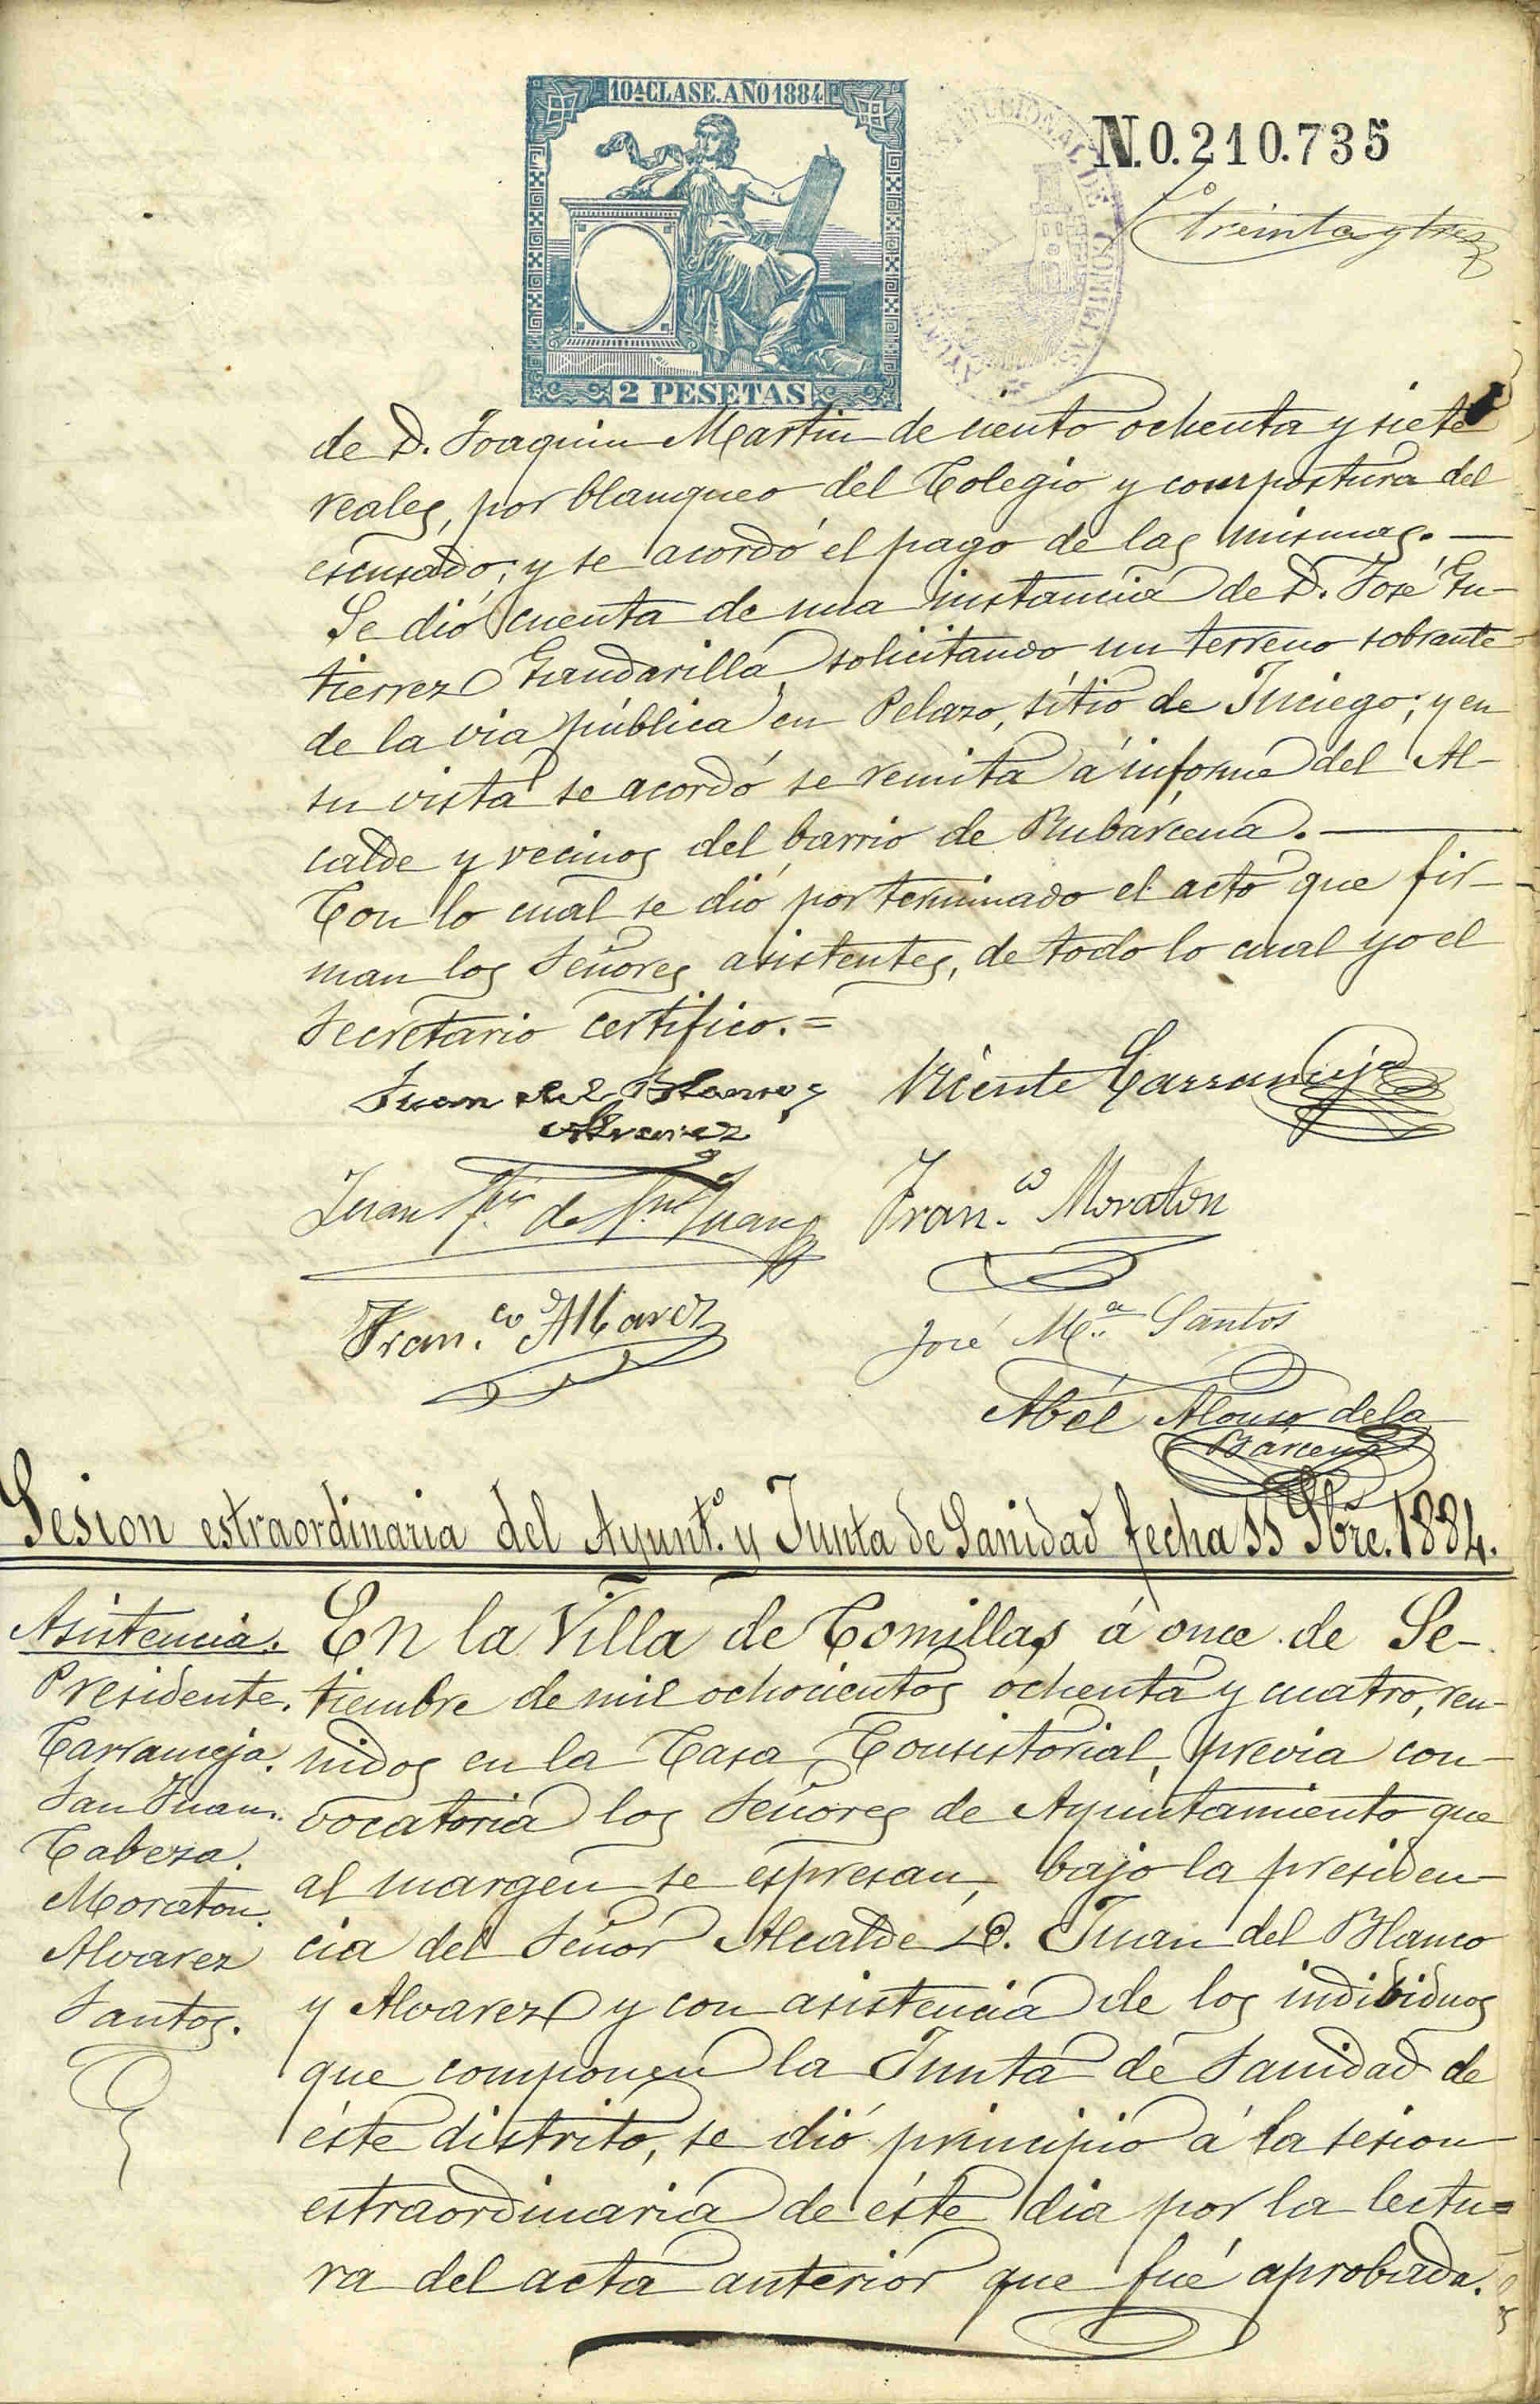 10ª CLASE. AÑO 1884
2 PESETAS
CONSTITUCIONAL DE COMILLAS
N.0.210.735
treinta y tres
de D. Joaquin Martin de ciento ochenta y siete
reales, por blanqueo del Colegio y compostura del
escusado; y se acordó el pago de las mismas.—
Se dió cuenta de una instancia de D. José Gu-
tierrez Gandarilla solicitando un terreno sobrante
de la via pública en Pelazo, sitio de Inciego; y en
su vista se acordó se remita á informe del Al-
calde y vecinos del barrio de Rubárcena.—
Con lo cual se dió por terminado el acto que fir-
man los Señores asistentes, de todo lo cual yo el
Secretario certifico.=
Juan del Blanco y
Alvarez
Vicente Carranceja
Juan de Sn Juan
Fran.co Moraton
Fran.co Alvarez
José M.a Santos
Abél Alonso de la
Bárcena
Sesion estraordinaria del Ayunt.o y Junta de Sanidad fecha 11 9bre. 1884.
Asistencia.
Presidente.
Carranceja.
San Juan.
Cabeza.
Moraton.
Alvarez
Santos.
En la Villa de Comillas á once de Se-
tiembre de mil ochocientos ochenta y cuatro, reu-
nidos en la Casa Consistorial, previa con-
vocatoria los Señores de Ayuntamiento que
al margen se espresan, bajo la presiden-
cia del Señor Alcalde D. Juan del Blanco
y Alvarez y con asistencia de los indibiduos
que componen la Junta de Sanidad de
éste distrito, se dió principio á la sesion
estraordinaria de éste dia por la lectu=
ra del acta anterior que fué aprobada.